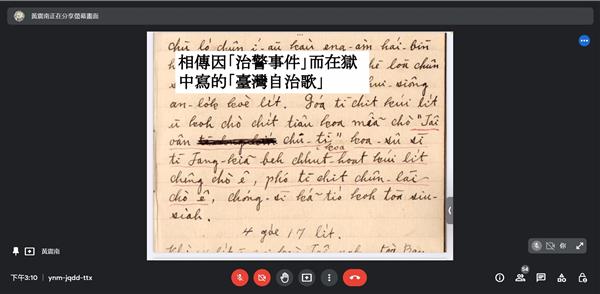 黃震南正在分享螢幕畫面
chū ló chún í-āu kàu eng-àm hái-bīn
相傳因「治警事件」而在獄
中寫的「臺灣自治歌」
an-lo̍k koè li̍t. Góa tī chit kúi li̍t
ū koh chò chi̍t tiâu koa miâ chò "Tâi
oân chū-tī koa" koa-sû sī
tī Tang-kiaⁿ beh chhut hoat kúi li̍t
chêng chò ê, phó͘ tī chit chūn-lāi
chò ê, chóng-sī ká tio̍h koh tōa siu-
siah.
4 goe̍h 17 li̍t.
黃震南
你
下午3:10 | ynm-jqdd-ttx
54